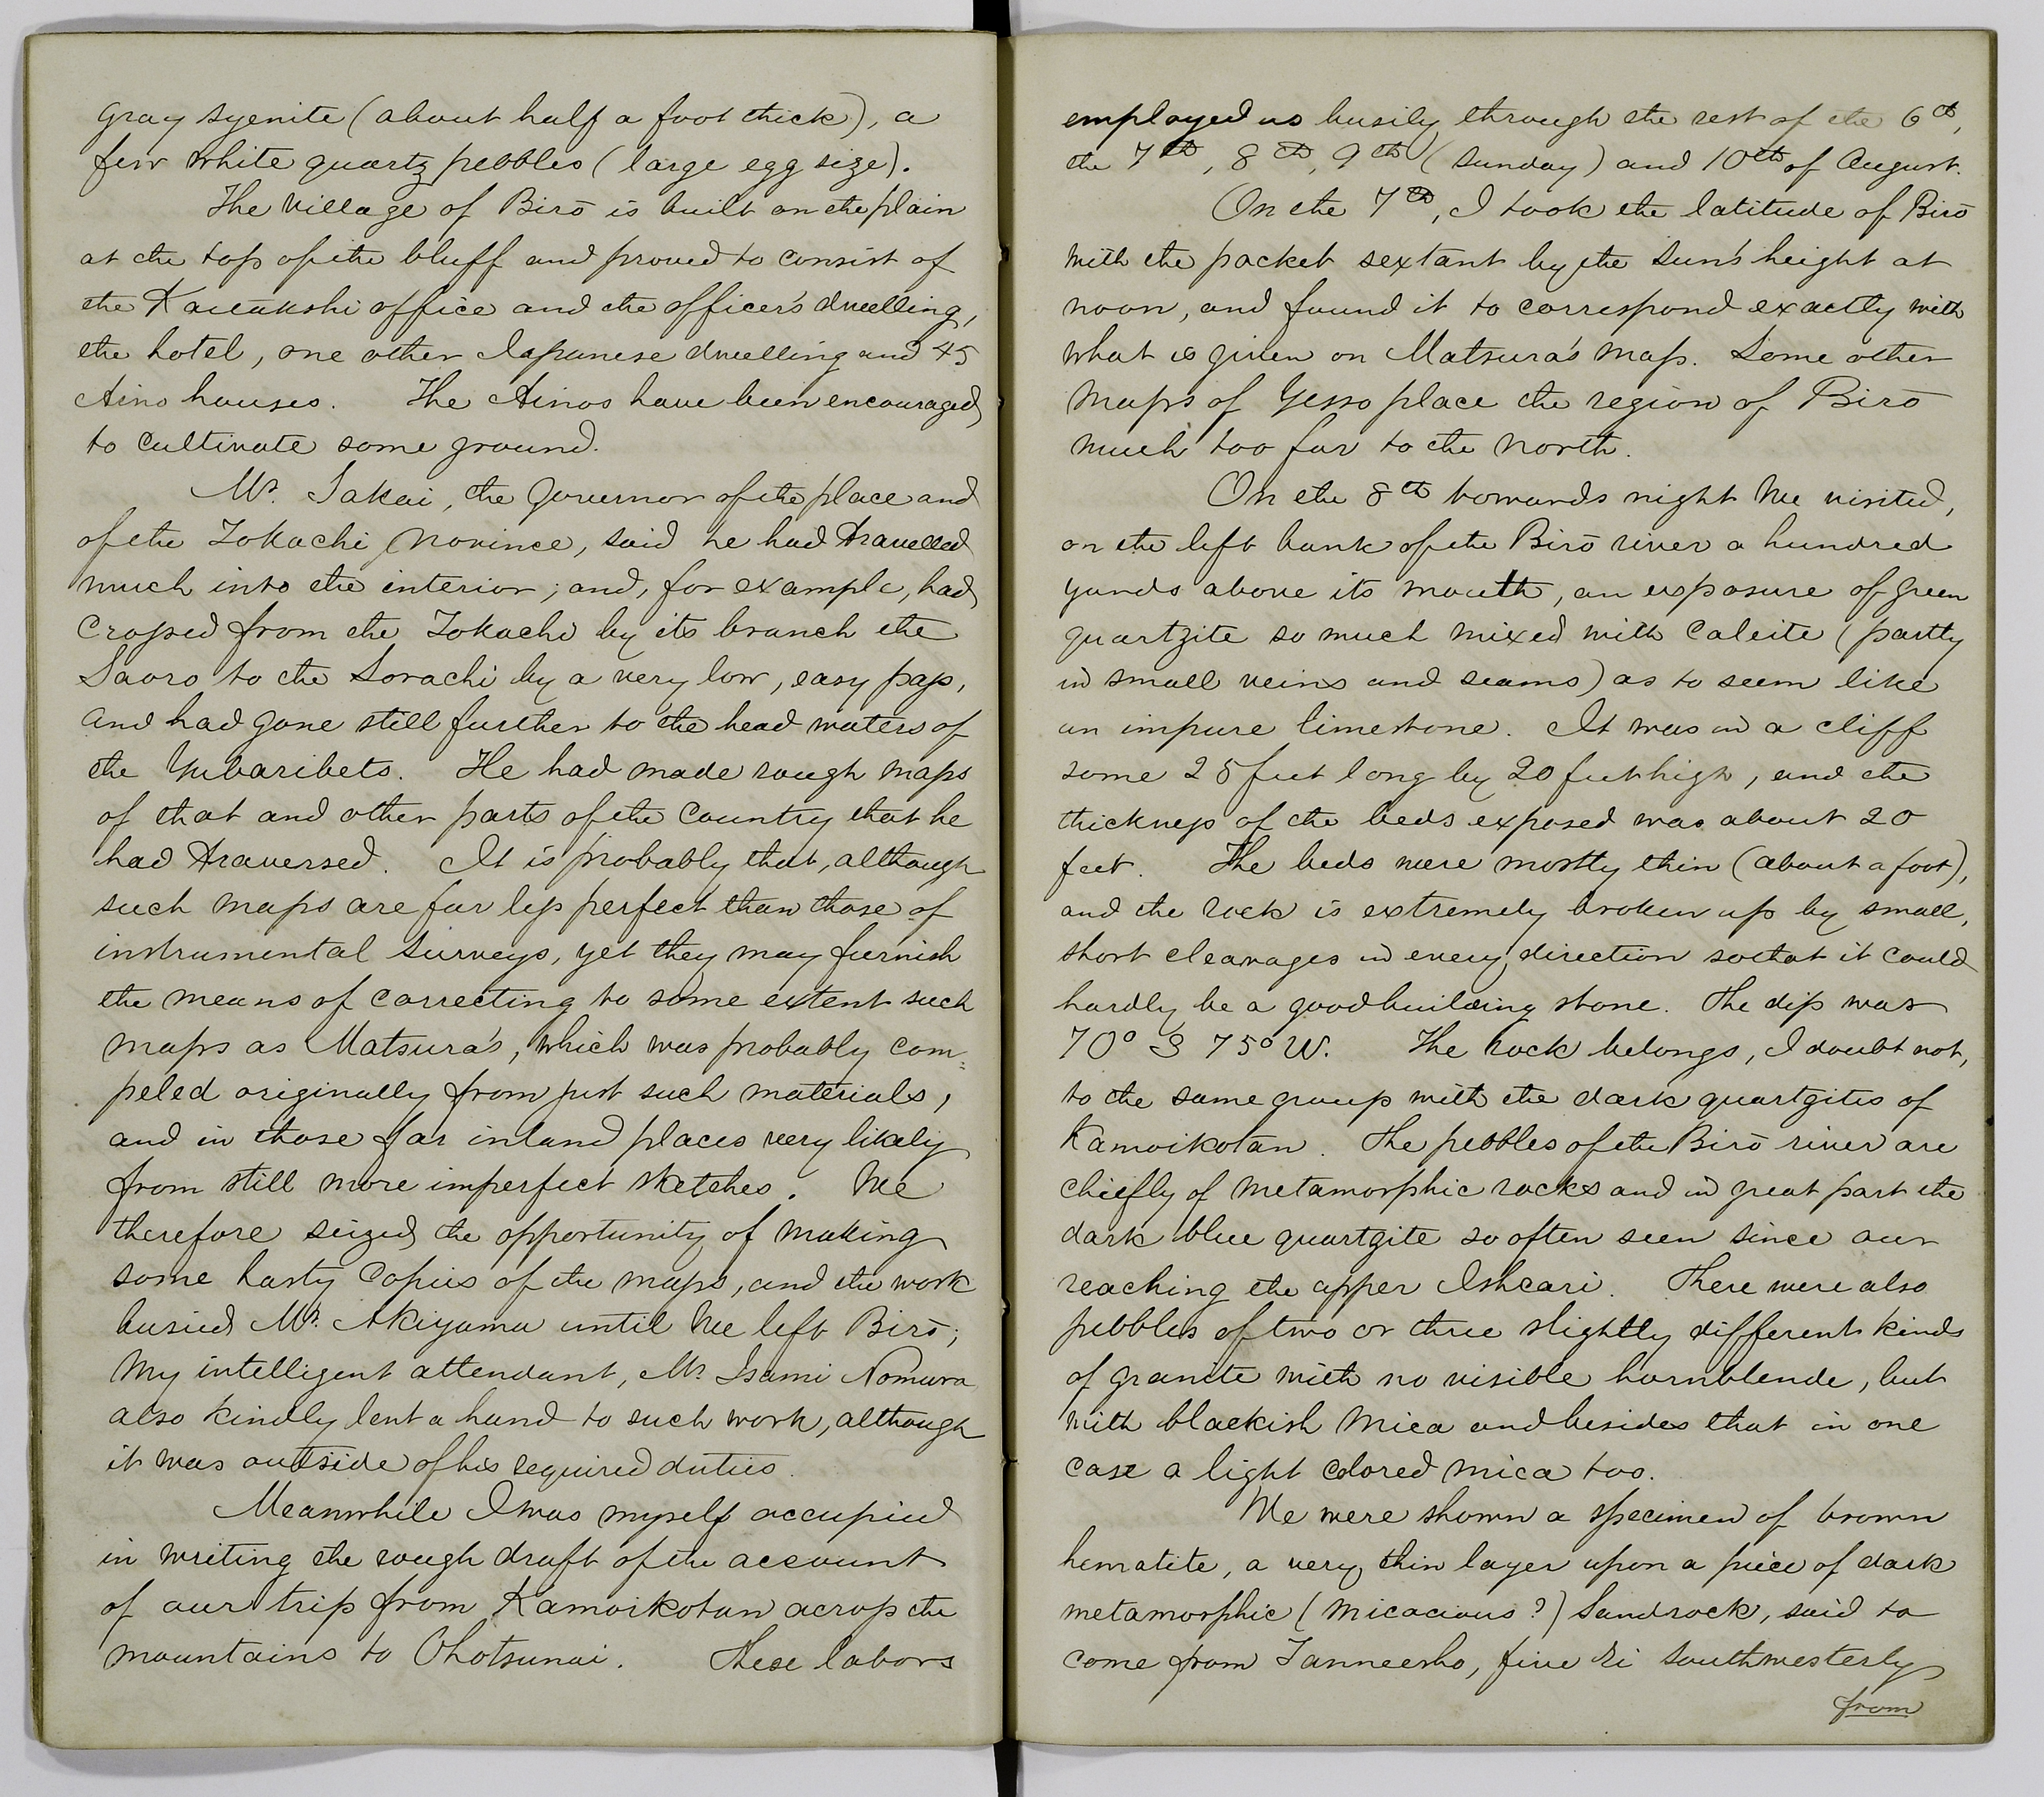 gray syenite (about half a foot thick), a
few white quartz pebbles (large egg size).
The village of Birō is built on the plain
at the top of the bluff and proved to consist of
the Kaitakshi office and the officer's dwelling,
the hotel, one other Japanese dwelling and 45
Aino houses. The Ainos have been encouraged
to cultivate some ground.
Mr. Sakai, the Governor of the place and
of the Tokachi province, said he had travelled
much into the interior; and, for example, had
crossed from the Tokachi by its branch the
Saoro to the Sorachi by a very low, easy pass,
and had gone still further to the head waters of
the Yubaribets. He had made rough maps
of that and other parts of the country that he
had traversed. It is probably that, although
such maps are far less perfect than those of
instrumental surveys, yet they may furnish
the means of correcting to some extent such
maps as Matsura's, which was probably com-
peled originally from just such materials,
and in those far inland places very likely
from still more imperfect sketches. We
therefore seized the opportunity of making
some hasty copies of the maps, and the work
busied Mr. Akiyama until we left Birō;
my intelligent attendant, Mr. Isami Nomura
also kindly lent a hand to such work, although
it was outside of his required duties.
Meanwhile I was myself occupied
in writing the rough draft of the account
of our trip from Kamoikotan across the
mountains to Ohotsunai. These labors
employed us busily through the rest of the 6th,
the 7th, 8th, 9th (Sunday) and 10th of August.
On the 7th, I took the latitude of Birō
with the pocket sextant by the Sun's height at
noon, and found it to correspond exactly with
what is given on Matsura's map. Some other
maps of Yesso place the region of Birō
much too far to the north.
On the 8th towards night we visited,
on the left bank of the Birō river a hundred
yards above its mouth, an exposure of green
quartzite so much mixed with calcite (partly
in small veins and seams) as to seem like
an impure limestone. It was in a cliff
some 25 feet long by 20 feet high, and the
thickness of the beds exposed was about 20
feet. The beds were mostly thin (about a foot),
and the rock is extremely broken up by small,
short cleavages in every direction so that it could
hardly be a good building stone. The dip was
70° S 75° W. The rock belongs, I doubt not,
to the same group with the dark quartzites of
Kamoikotan. The pebbles of the Birō river are
chiefly of metamorphic rocks and in great part the
dark blue quartzite so often seen since our
reaching the upper Ishcari. There were also
pebbles of two or three slightly different kinds
of granite with no visible hornblende, but
with blackish mica and besides that in one
case a light colored mica too.
We were shown a specimen of brown
hematite, a very thin layer upon a piece of dark
metamorphic (micacious?) Sandrock, said to
come from Tanneesho, five ri southwesterly
from